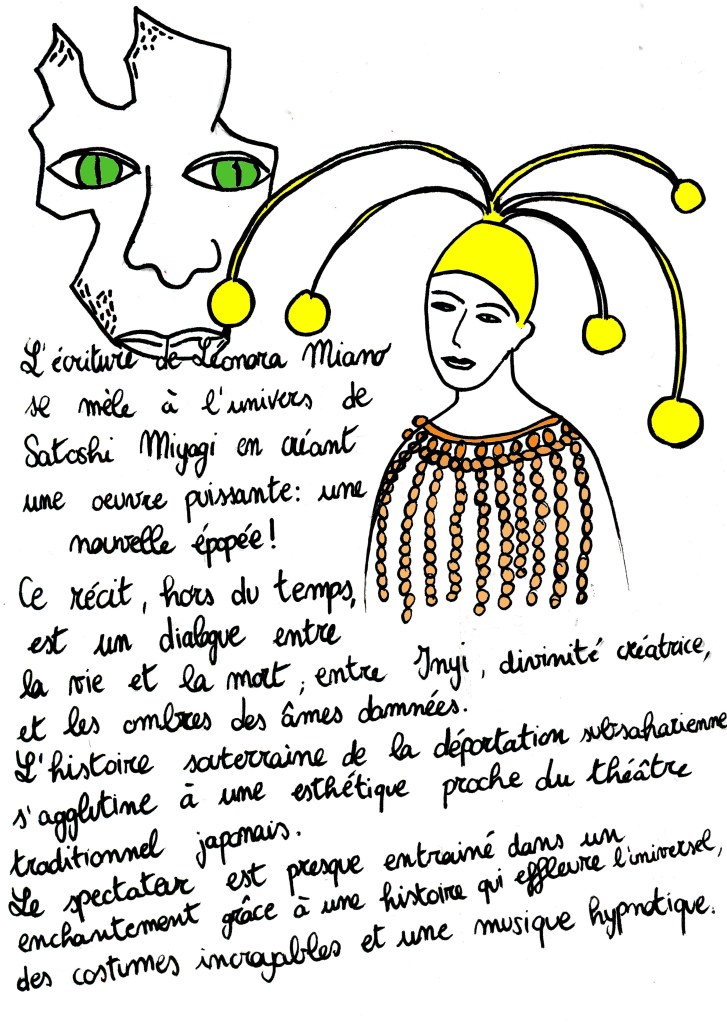 L'écriture de Léonora Miano
se mêle à l'univers de
Satoshi Miyagi en créant
une oeuvre puissante: une
nouvelle épopée!
Ce récit, hors du temps,
est un dialogue entre
la vie et la mort ; entre Inyi, divinité créatrice,
et les ombres des âmes damnées.
L'histoire souterraine de la déportation subsaharienne
s'agglutine à une esthétique proche du théâtre
traditionnel japonais.
Le spectateur est presque entrainé dans un
enchantement grâce à une histoire qui effleure l'universel,
des costumes incroyables et une musique hypnotique.